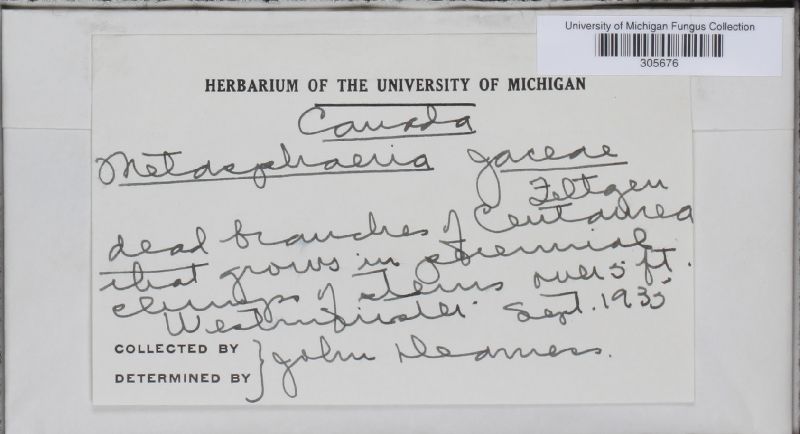 University of Michigan Fungus Collection
305676
HERBARIUM OF THE UNIVERSITY OF MICHIGAN
Canada
Metasphaeria Jaceae
Feltgen
dead branches of Centaurea
that grows in perennial
clumps of stems over 5 ft.
Westminster. Sept. 1935
COLLECTED BY
DETERMINED BY } John Dearness.